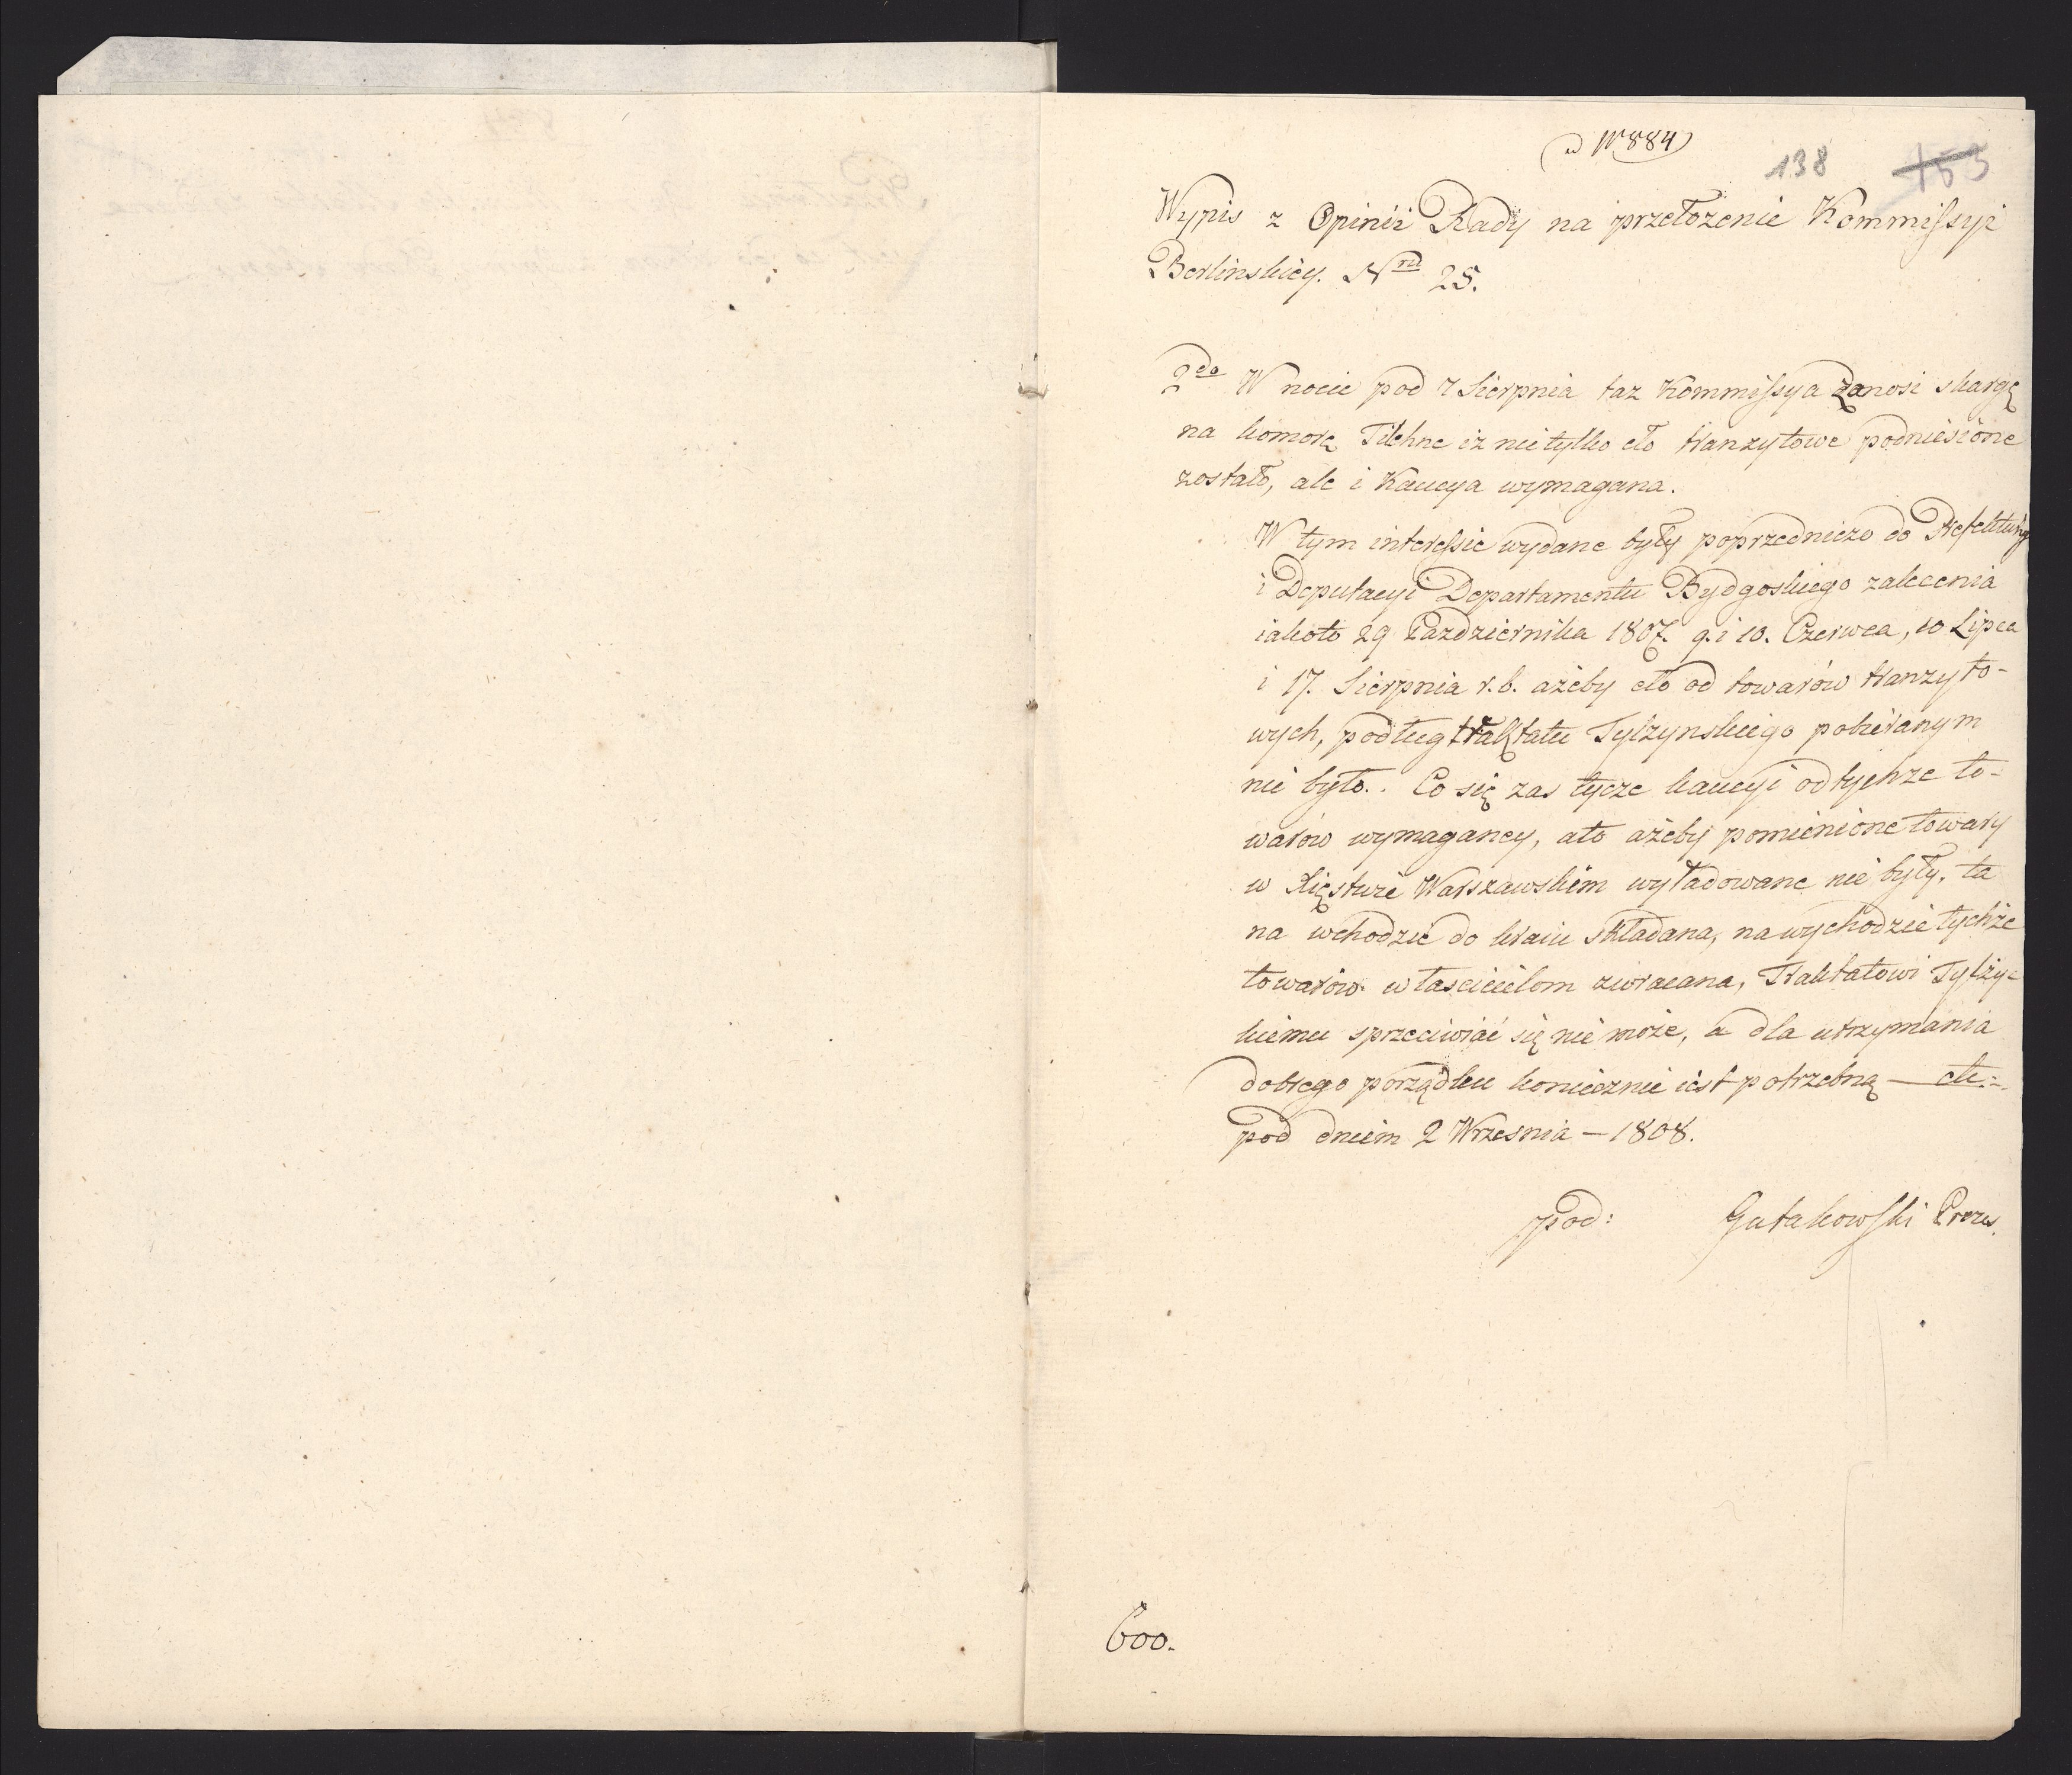 ad N 884
138 153
Wypis z Opinii Rady na przełożenie Kommissyi
Berlinskiey. Nro 25.
2do W nocie pod 7 Sierpnia taż Kommissya zanosi skargę
na komorę Filehne iż nietylko cło tranzytowe podniesione
zostało, ale i Kaucya wymagana.
W tym interessie wydane były poprzedniczo do Prefektury
i Deputacyi Departamentu Bydgoskiego zalecenia
iakoto 29 Pazdziernika 1807. 9. i 10. Czerwca, 10 Lipca
i 17. Sierpnia r.b. ażeby cło od towarów tranzyto-
wych, podług traktatu Tylzynskiego pobieranym
nie było. Co się zas tycze kaucyi od tychze to-
warów wymaganey, ato ażeby pomienione towary
w Xięstwie Warszawskiem wyładowane nie były, ta
na wchodzie do kraiu składana, na wychodzie tychże
towarów własciciclom zwracana, Traktatowi Tylżyc
kiemu sprzeciwiać się nie może, a dla utrzymania
dobrego porządku koniecznie iest potrzebną — etc:
pod dniem 2 Wrzesnia — 1808.
pod: Gutakowski Prezes.
600.